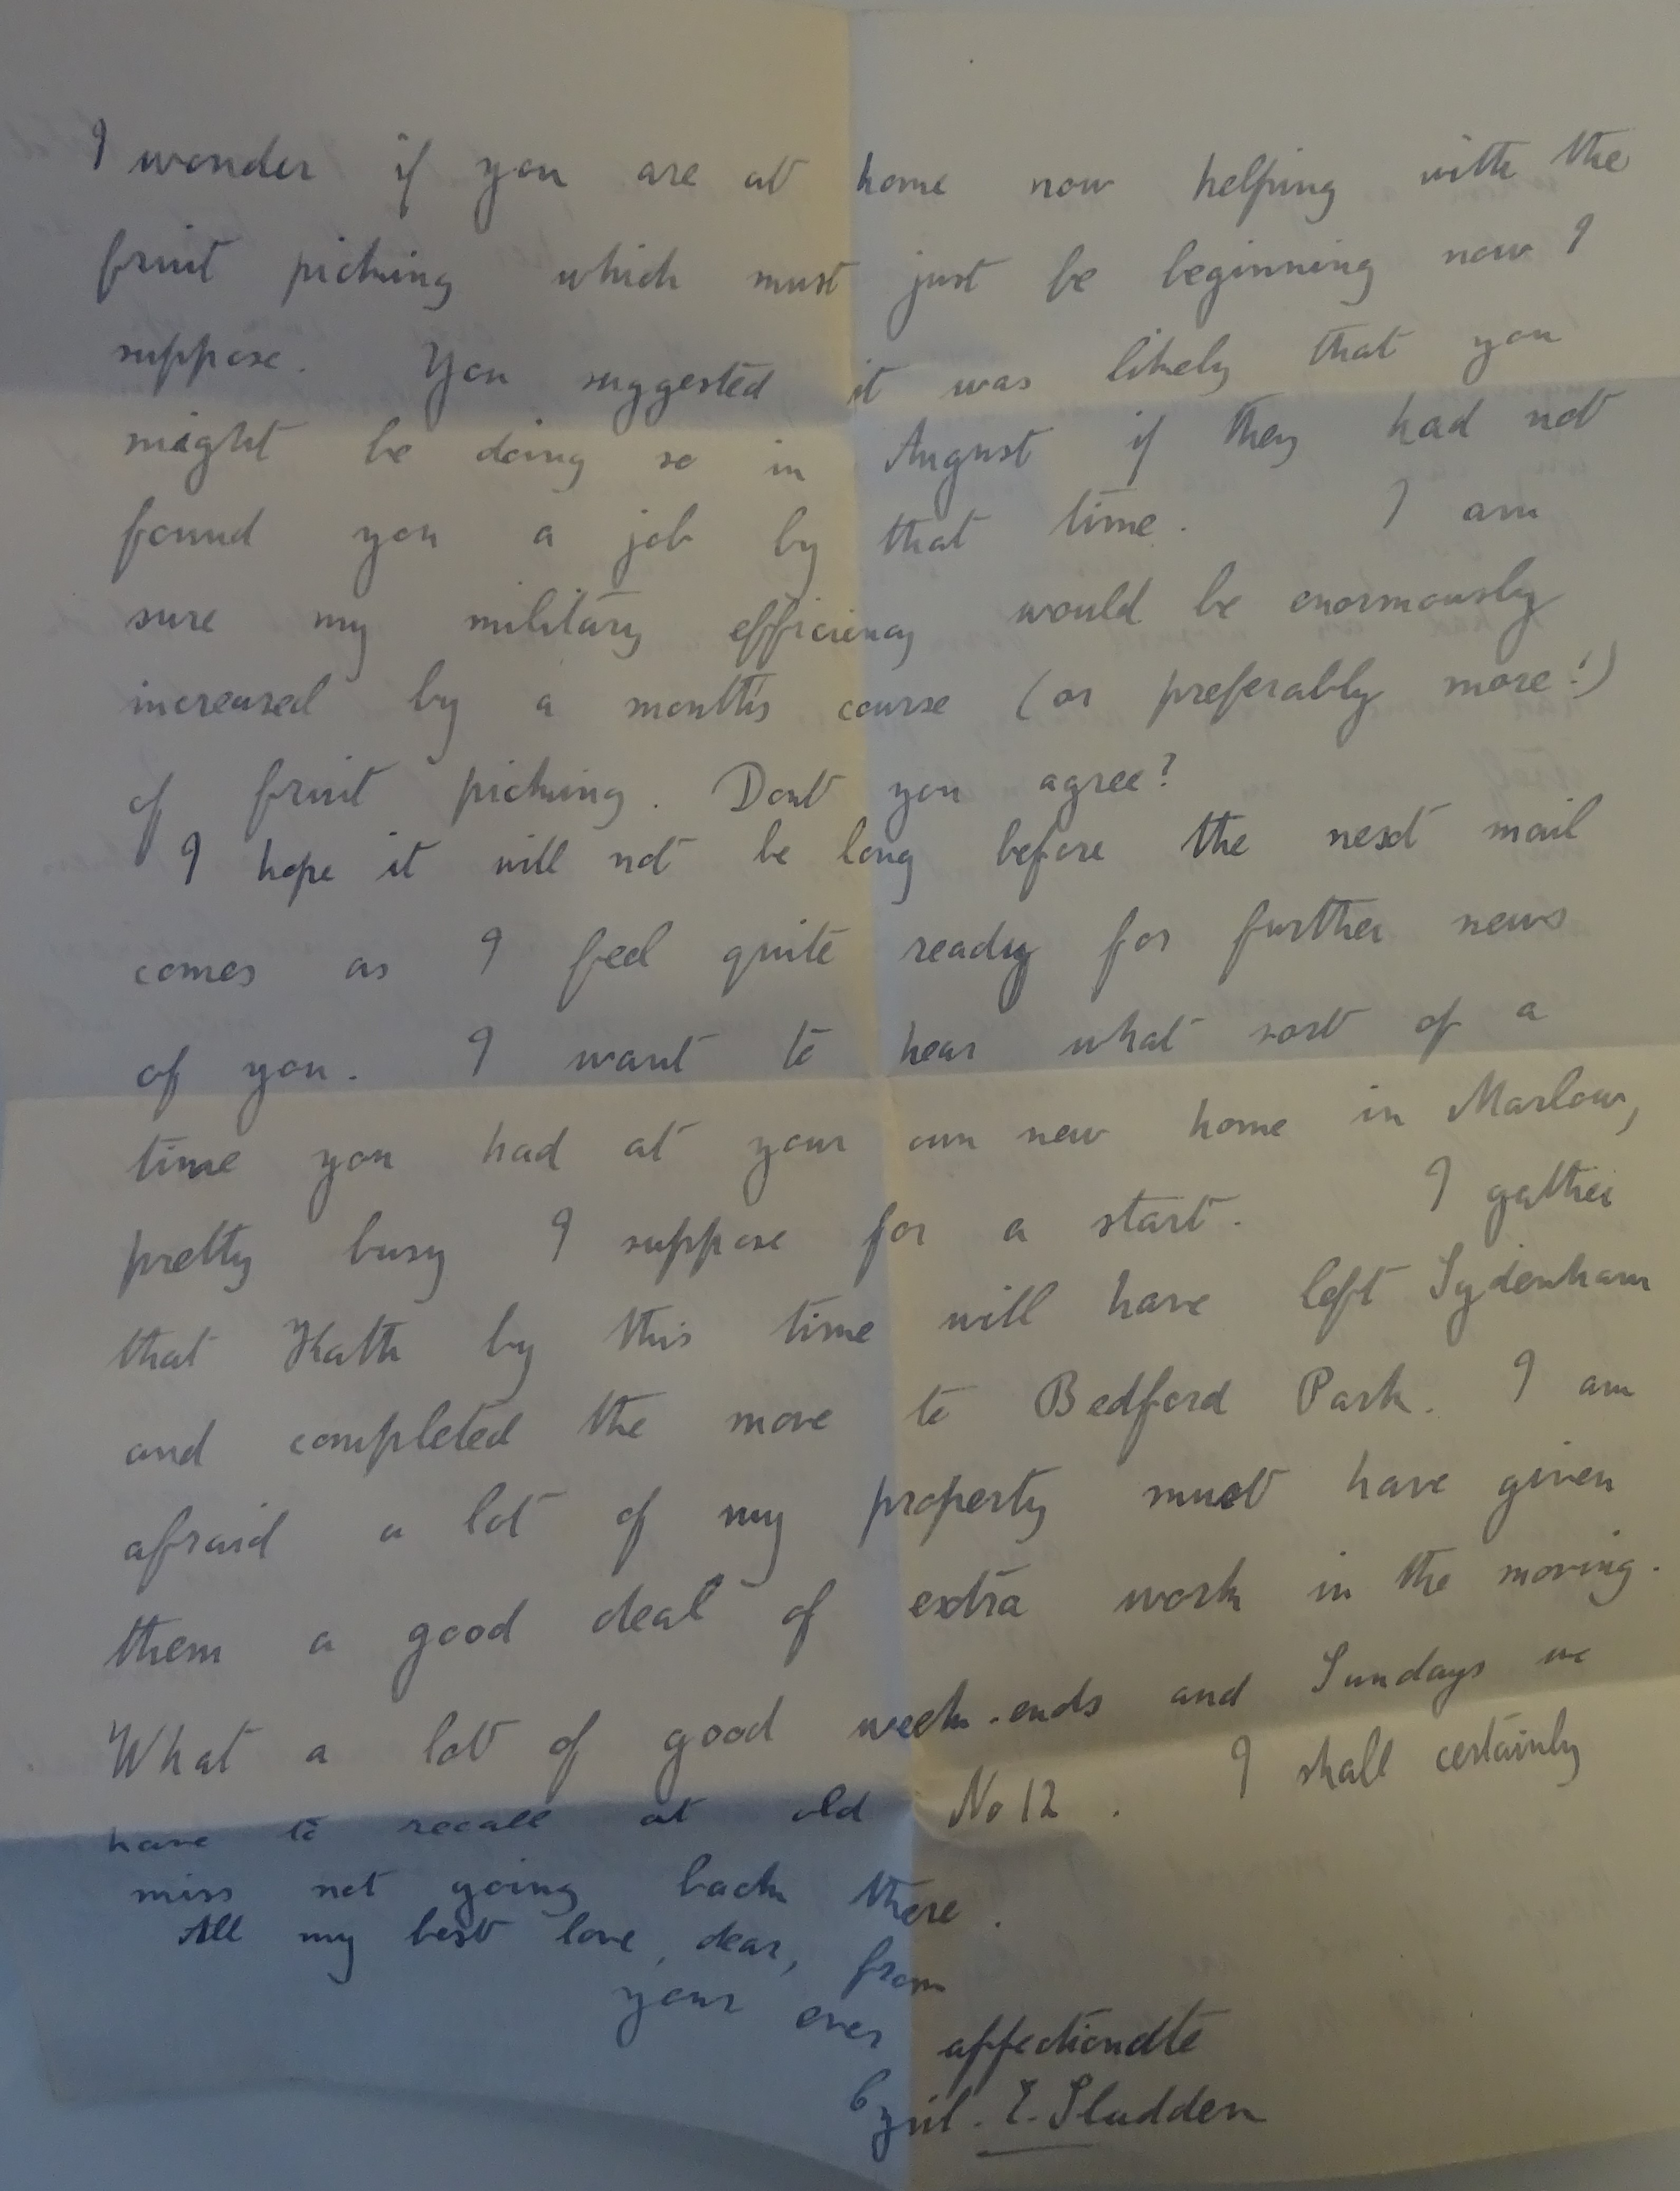 I wonder if you are at home now helping with the
fruit picking which must just be beginning now I
suppose. You suggested it was likely that you
might be doing so in August if they had not
found you a job by that time. I am
sure my military efficiency would be enormously
increased by a month's course (or preferably more!)
of fruit picking. Dont you agree?
I hope it will not be long before the next mail
comes as I feel quite ready for further news
of you. I want to hear what sort of a
time you had at your own new home in Marlow,
pretty busy I suppose for a start. I gather
that Kath by this time will have left Sydenham
and completed the move to Bedford Park. I am
afraid a lot of my property must have given
them a good deal of extra work in the moving.
What a lot of good week-ends and Sundays we
have to recall at old No 12. I shall certainly
miss not going back there.
All my best love, dear, from
your ever affectionate
Cyril. E. Sladden